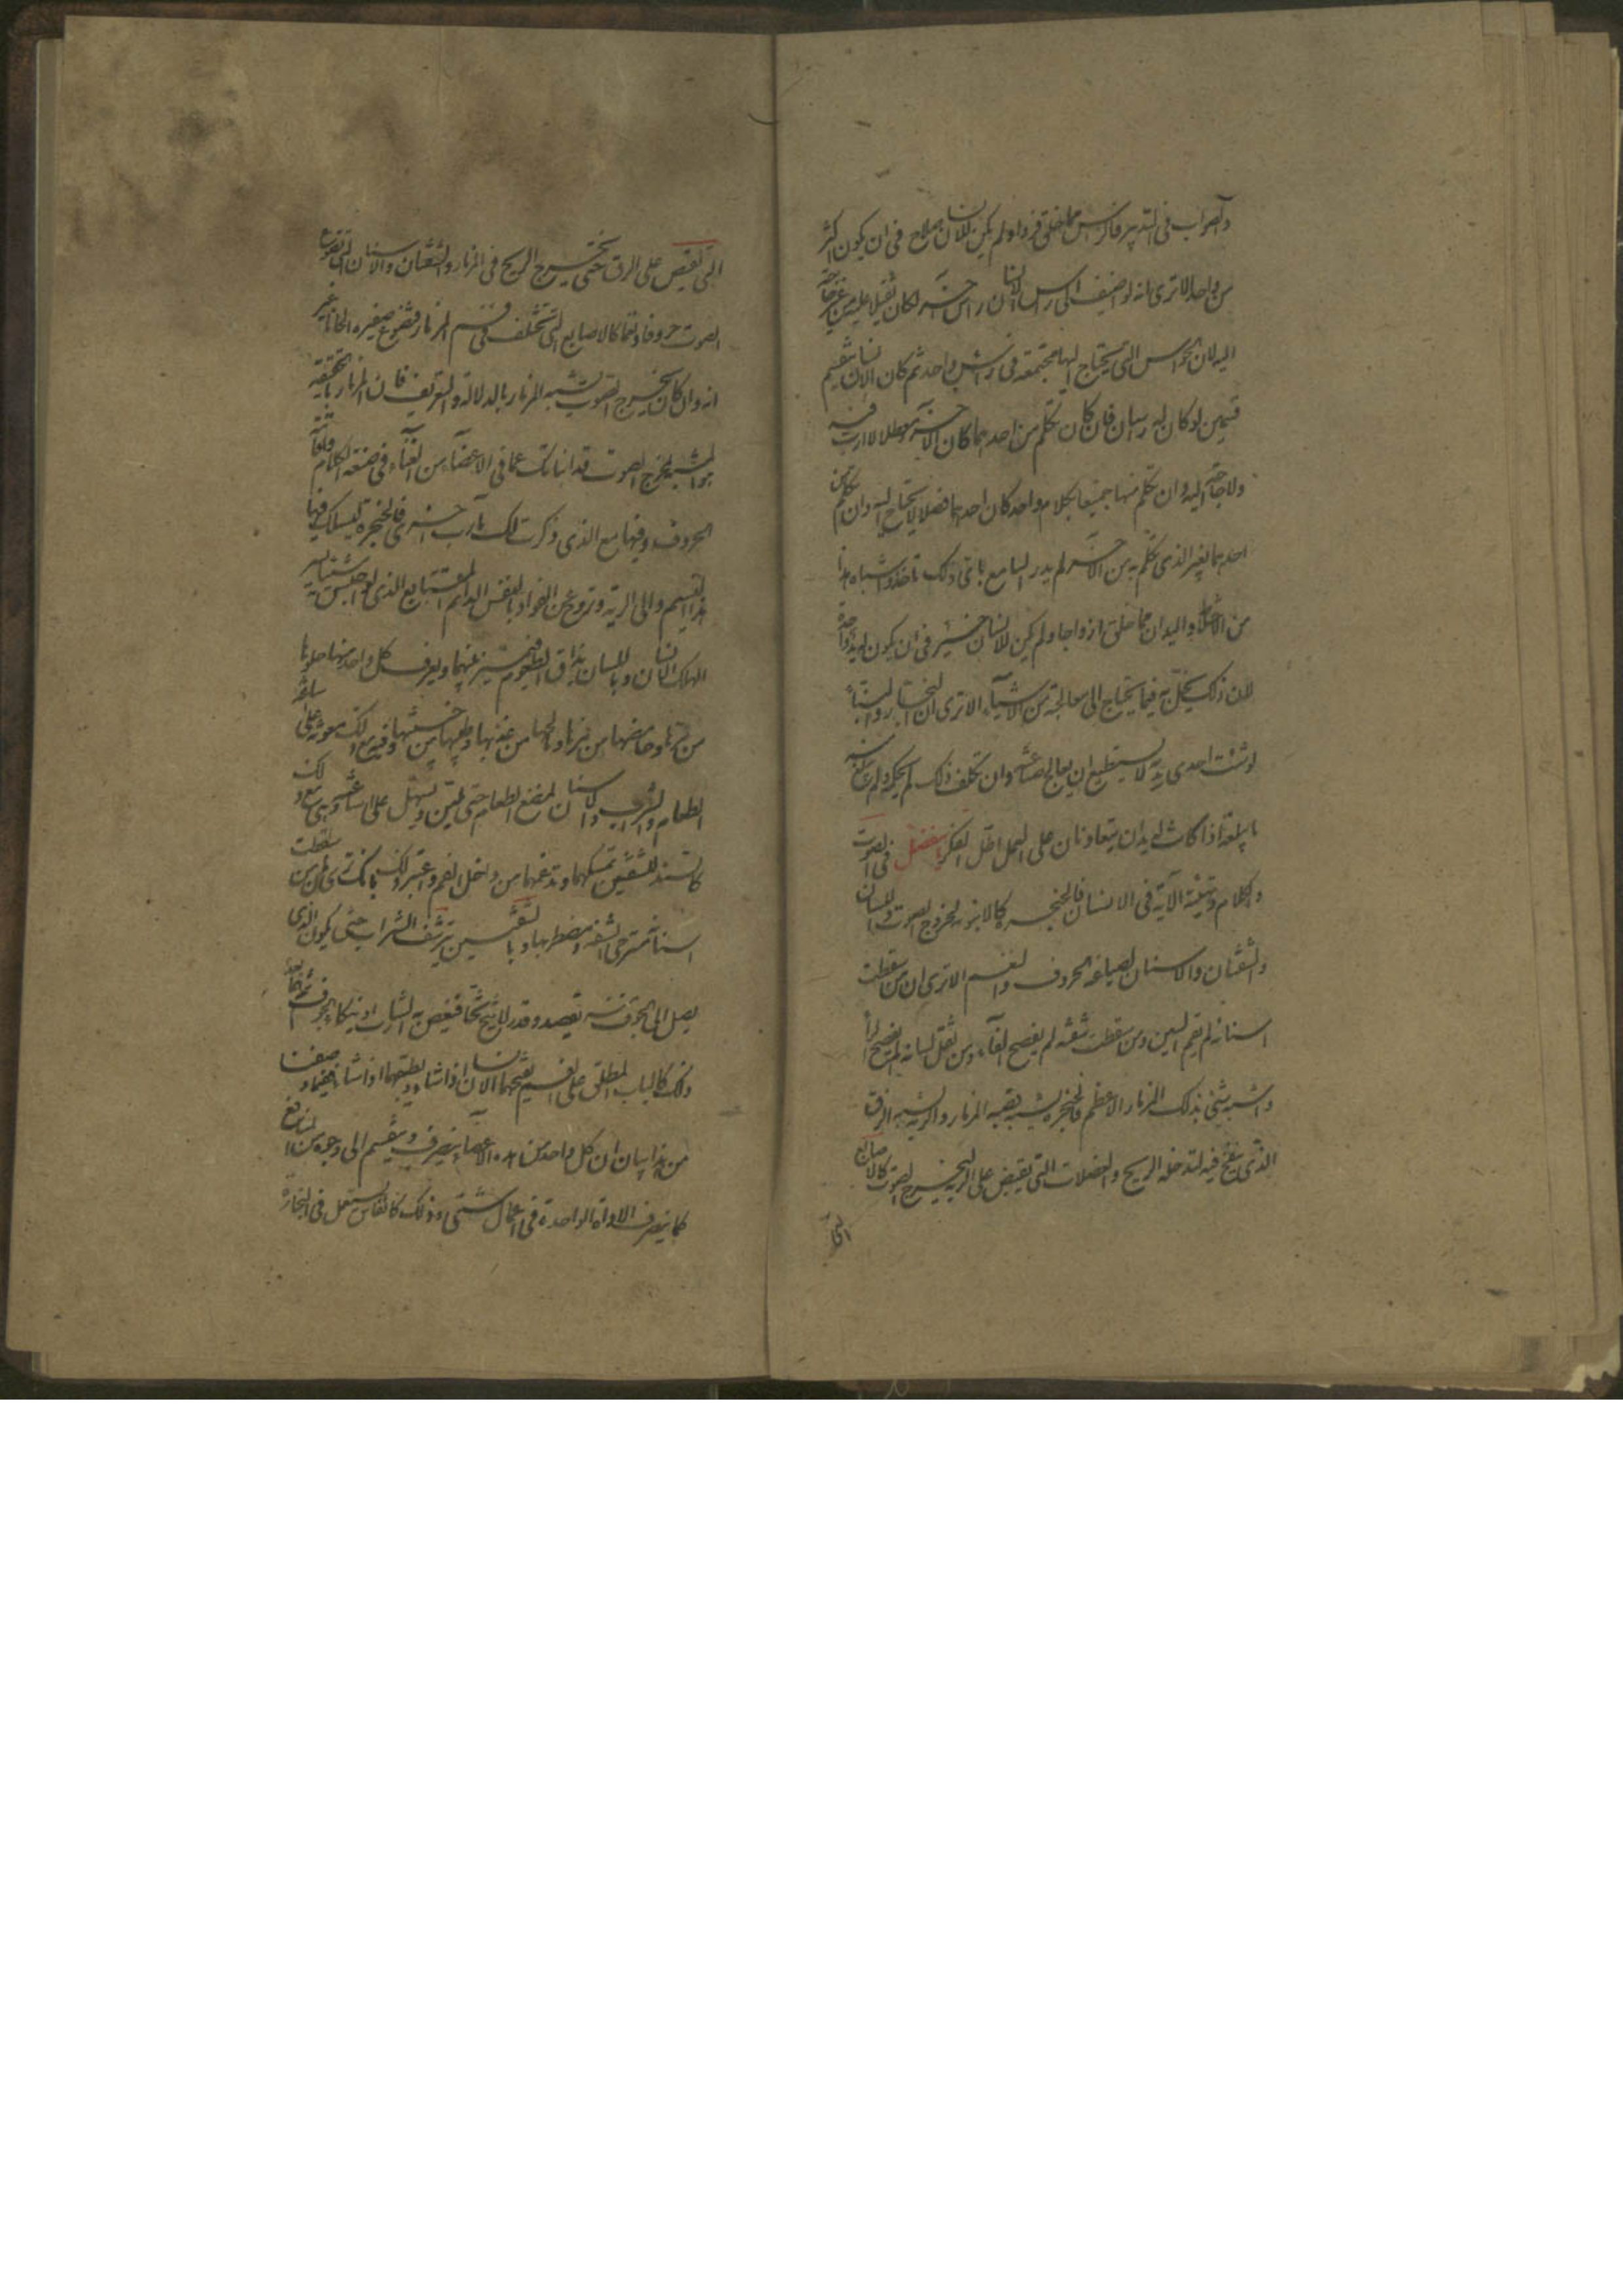 والصواب فى التدبير فالراس مما خلق فردا ولم يكن للانسان صلاح فى ان يكون اكثر
من واحد الا ترى انه لو اضيف الى راس الانسان راس آخر لكان ثقيلا عليه من غير حاجة
اليه لان الحواس التى يحتاج اليها مجتمعة فى راس واحد ثم كان الانسان ينقسم
قسمين لو كان له راسان فان كان تكلم من احدهما كان الآخر معطلا لا ارب فيه
ولا حاجة اليه وان تكلم منهما جميعا بكلام واحد كان احدهما فضلا لا يحتاج اليه وان تكلم من
احدهما بغير الذى تكلم به من الآخر لم يدر السامع باى ذلك ياخذ واشباه هذا
من الاخلاط واليدان مما خلق ازواجا ولم يكن للانسان خير فى ان يكون له يد واحدة
لان ذلك يخل به فيما يحتاج الى معالجته من الاشياء الا ترى ان النجار والبناء
لو شلت احدى يديه لا يستطيع ان يعالج صناعته وان تكلف ذلك لم يحكمه ولم يبلغ منه
ما يبلغه اذا كانت له يدان يتعاونان على العمل اطل الفكر يا مفضل فى الصوت
والكلام وتهيئة الآته فى الانسان فالحنجره كالانبوبه لخروج الصوت واللسان
والشفتان والاسنان لصياغة الحروف والنغم الا ترى ان من سقطت
اسنانه لم يقم السين ومن سقطت شفته لم يفصح الفاء ومن ثقل لسانه لم يفصح الراء
واشبه شىء بذلك المزمار الاعظم فالحنجره يشبه قصبه المزمار والريه يشبه الزق
الذى ينفخ فيه لتدخله الريح والعضلات التى يقبض على الريه ليخرج الصوت كالاصابع
التى
التى يقبض على الزق حتى يخرج الريح فى المزمار والشفتان والاسنان التى تصوغ
الصوت حروفا ونغما كالاصابع التى تختلف فى فم المزمار فتصوغ صفيره الحانا غير
انه وان كان مخرج الصوت يشبه المزمار بالدلالة والتعريف فان المزمار بالحقيقه
هو المشبه بمخرج الصوت قد انباتك بما فى الاعضاء من الغناء فى صنعة الكلام واقامة
الحروف وفيها مع الذى ذكرت لك مارب اخرى فالحنجره ليسلك فيها
هذا النسيم الى الريه وتروح عن الفواد بالنفس الدائم المتتابع الذى لو احتبس شيئا يسيرا
لهلك الانسان وباللسان يذاق الطعوم فيميز بينهما ويعرف كل واحد منها حلوها
من مرها وحامضها من مزها ومالحها من عذبها وطيبها من خبيثها وفيه مع ذلك معونة على اساغة
الطعام والشراب والاسنان لمضغ الطعام حتى تلين ويسهل على اساغته وهى مع ذلك
كالسند للشفتين تمسكهما وتدعمهما من داخل الفم واعتبر ذلك بانك ترى من سقطت
اسنانه مسترخى الشفه ومضطربها وبالشفتين يترشف الشراب حتى يكون الذى
يصل الى الجوف منه بقصد وقدر لا يثج ثجا فيغص به الشارب او ينكا فى الجوف ثم هما بعد
ذلك كالباب المطبق على الفم يفتحهما الانسان اذا شاء ويطبقهما اذا شاء وفيما وصفنا
من هذا بيان ان كل واحد من هذه الاعضاء يتصرف وينقسم الى وجوه من المنافع
كما يتصرف الاداة الواحدة فى اعمال شتى وذلك كالفاس يستعمل فى النجارة